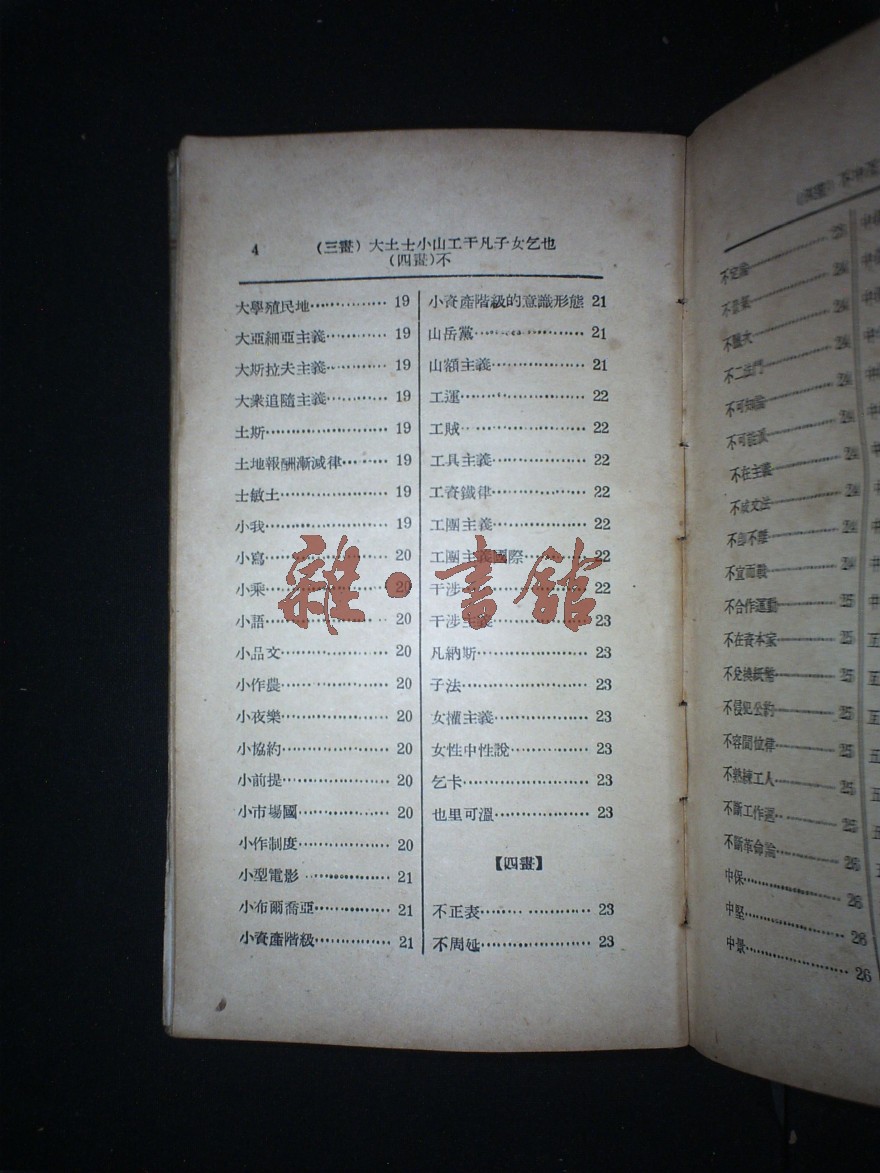 4
(三畫) 大土士小山工干凡子女乞也
(四畫)不
大學殖民地 19
大亞細亞主義 19
大斯拉夫主義 19
大衆追隨主義 19
土斯 19
土地報酬漸減律 19
士敏土 19
小我 19
小寫 20
小乘 20
小語 20
小品文 20
小作農 20
小夜樂 20
小協約 20
小前提 20
小市場國 20
小作制度 20
小型電影 21
小布爾喬亞 21
小資產階級 21
小資產階級的意識形態 21
山岳黨 21
山額主義 21
工運 22
工賊 22
工具主義 22
工資鐵律 22
工團主義 22
工團主義國際 22
干涉 22
干涉主義 23
凡納斯 23
子法 23
女權主義 23
女性中性說 23
乞卡 23
也里可溫 23
【四畫】
不正表 23
不周延 23
雜·書館
不定論 23
24
24
不二法門 24
不可知論 24
不可能派 24
不在主義 24
不成文法 24
不即不離 24
不宣而戰 24
不合作運動 25
不在資本家 25
不兌換紙幣 25
不侵犯公約 25
不容間位律 25
不熟練工人 25
不斷工作週 25
不斷革命論 26
中保 26
中堅 26
中景 26